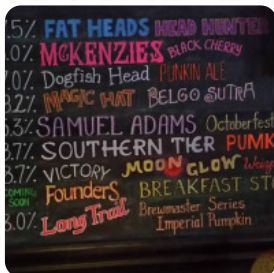 .5% FAT HEADS HEAD HUNTER
.0% McKENZIES BLACK CHERRY
7.0% Dogfish Head PUNKIN ALE
3.2% MAGIC HAT BELGO SUTRA
3.3% SAMUEL ADAMS Octoberfest
3.7% SOUTHERN TIER PUMK
3.7% VICTORY MOON GLOW Weiz
COMING SOON Founders BREAKFAST ST
3.0% Long Trail Brewmaster Series
Imperial Pumpkin